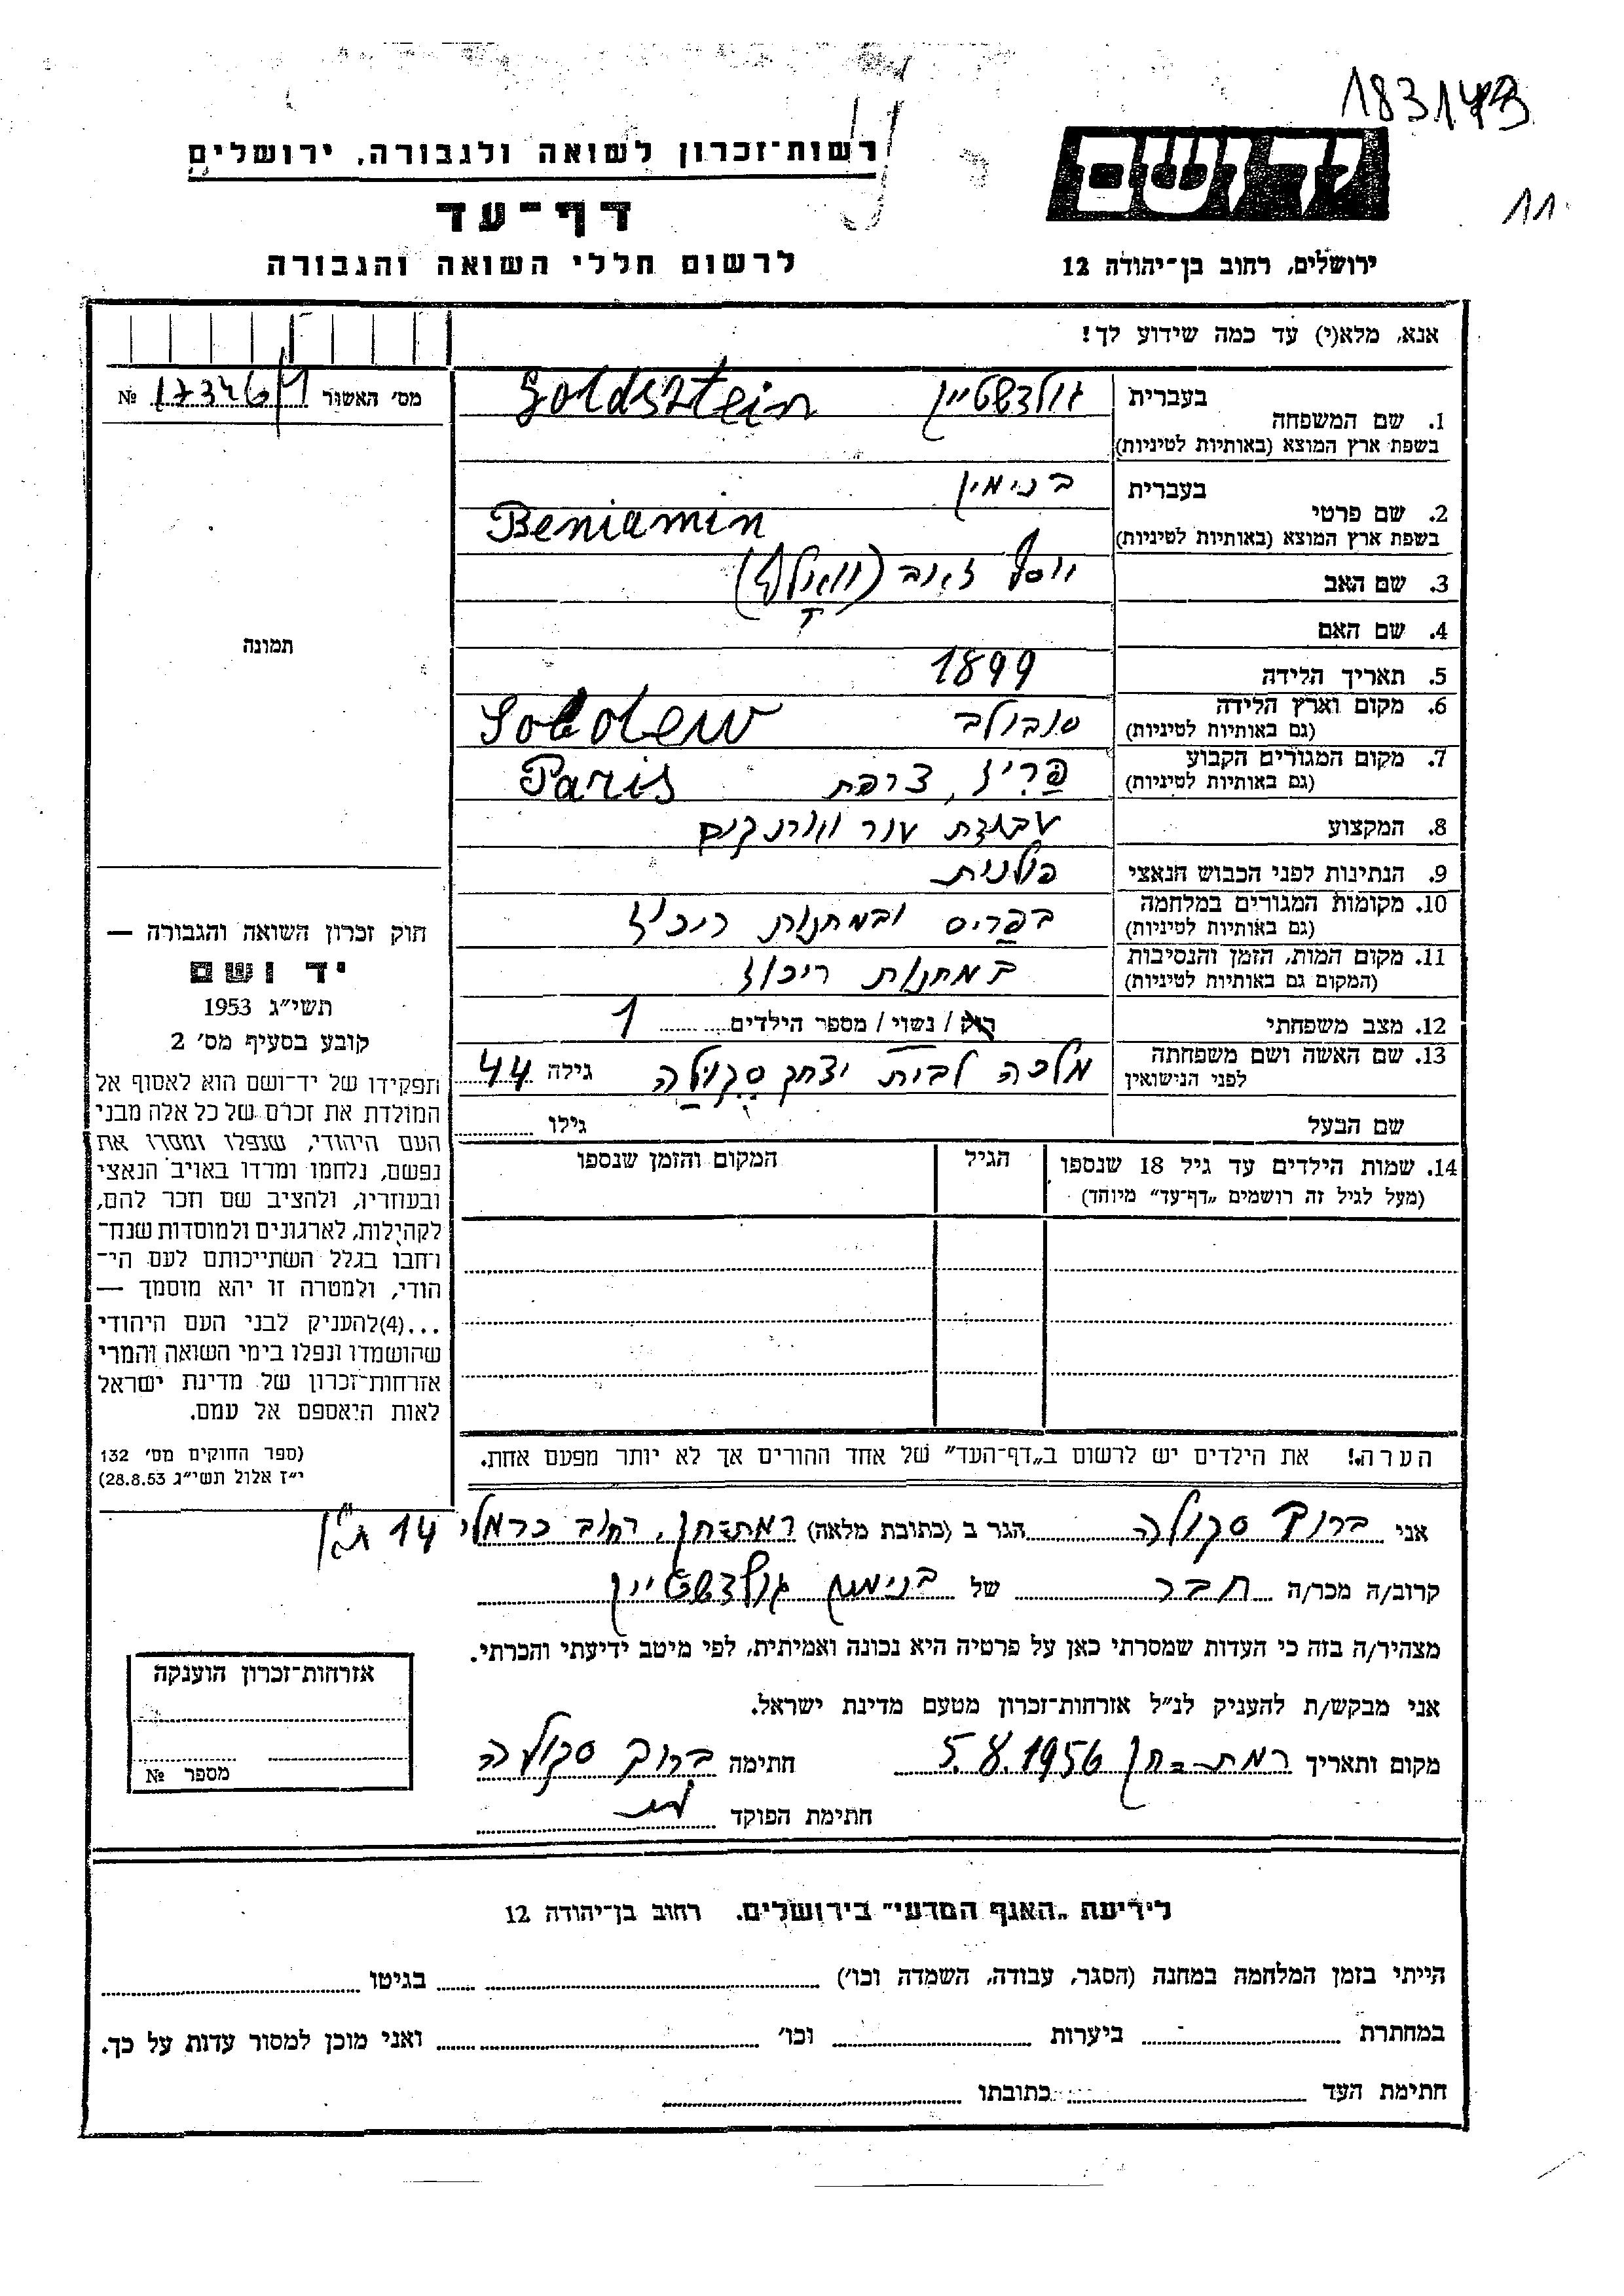 183143
11
יד ושם
רשות־זכרון לשואה ולגבורה, ירושלים
דף־עד
לרשום חללי השואה והגבורה
ירושלים, רחוב בן־יהודה 12
אנא, מלא(י) עד כמה שידוע לך!
מס׳ האשור 17346/1 №
1. שם המשפחה
בעברית גולדשטיין Goldsztein
בשפת ארץ המוצא (באותיות לטיניות)
בעברית בנימין
2. שם פרטי
בשפת ארץ המוצא (באותיות לטיניות) Beniamin
3. שם האב יוסף זאב (וואלף)
4. שם האם
5. תאריך הלידה 1899
6. מקום וארץ הלידה סובולב Sobolew
(גם באותיות לטיניות)
7. מקום המגורים הקבוע פריז, צרפת Paris
(גם באותיות לטיניות)
8. המקצוע עבודת עור וארנקים
9. הנתינות לפני הכבוש הנאצי פולנית
10. מקומות המגורים במלחמה בפריס ובמחנות ריכוז
(גם באותיות לטיניות)
11. מקום המות, הזמן והנסיבות במחנות ריכוז
(המקום גם באותיות לטיניות)
12. מצב משפחתי רוק / נשוי / מספר הילדים 1
13. שם האשה ושם משפחתה מלכה לבית יצחק סקולה גילה 44
לפני הנישואין
שם הבעל גילו
14. שמות הילדים עד גיל 18 שנספו הגיל המקום והזמן שנספו
(מעל לגיל זה רושמים „דף־עד״ מיוחד)
הערה! את הילדים יש לרשום ב„דף־העד״ של אחד ההורים אך לא יותר מפעם אחת.
תמונה
חוק זכרון השואה והגבורה —
יד ושם
תשי״ג 1953
קובע בסעיף מס׳ 2
ותפקידו של יד־ושם הוא לאסוף אל
המולדת את זכרם של כל אלה מבני
העם היהודי, שנפלו ומסרו את
נפשם, נלחמו ומרדו באויב הנאצי
ובעוזריו, ולהציב שם וזכר להם,
לקהילות, לארגונים ולמוסדות שנח־
רבו בגלל השתייכותם לעם הי־
הודי, ולמטרה זו יהא מוסמך —
...(4)להעניק לבני העם היהודי
שהושמדו ונפלו בימי השואה והמרי
אזרחות־זכרון של מדינת ישראל
לאות היאספם אל עמם.
(ספר החוקים מס׳ 132
י״ז אלול תשי״ג 28.8.53)
אני ברוך סקולה הגר ב (כתובת מלאה) רמת־חן, רחוב כרמלי 14
קרוב/ה מכר/ה חבר של בנימין גולדשטיין
מצהיר/ה בזה כי העדות שמסרתי כאן על פרטיה היא נכונה ואמיתית, לפי מיטב ידיעתי והכרתי.
אני מבקש/ת להעניק לנ״ל אזרחות־זכרון מטעם מדינת ישראל.
מקום ותאריך רמת־חן 5.8.1956 חתימה ברוך סקולה
חתימת הפוקד
אזרחות־זכרון הוענקה
מספר №
לידיעת „האגף המדעי״ בירושלים. רחוב בן־יהודה 12
הייתי בזמן המלחמה במחנה (הסגר, עבודה, השמדה וכו׳) בגיטו
במחתרת ביערות וכו׳ ואני מוכן למסור עדות על כך.
חתימת העד כתובתו